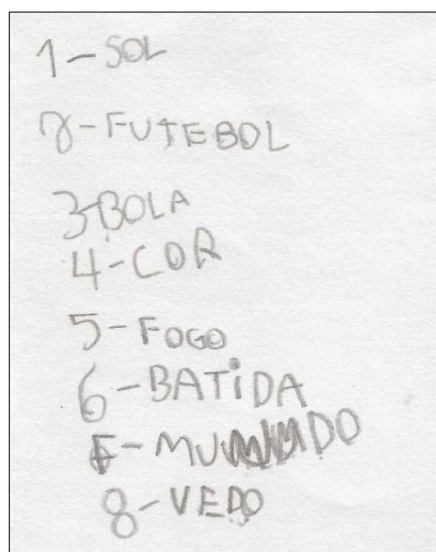 1-SOL
2-FUTEBOL
3-BOLA
4-COR
5-FOGO
6-BATiDA
7-MUNDO
8-VEDO